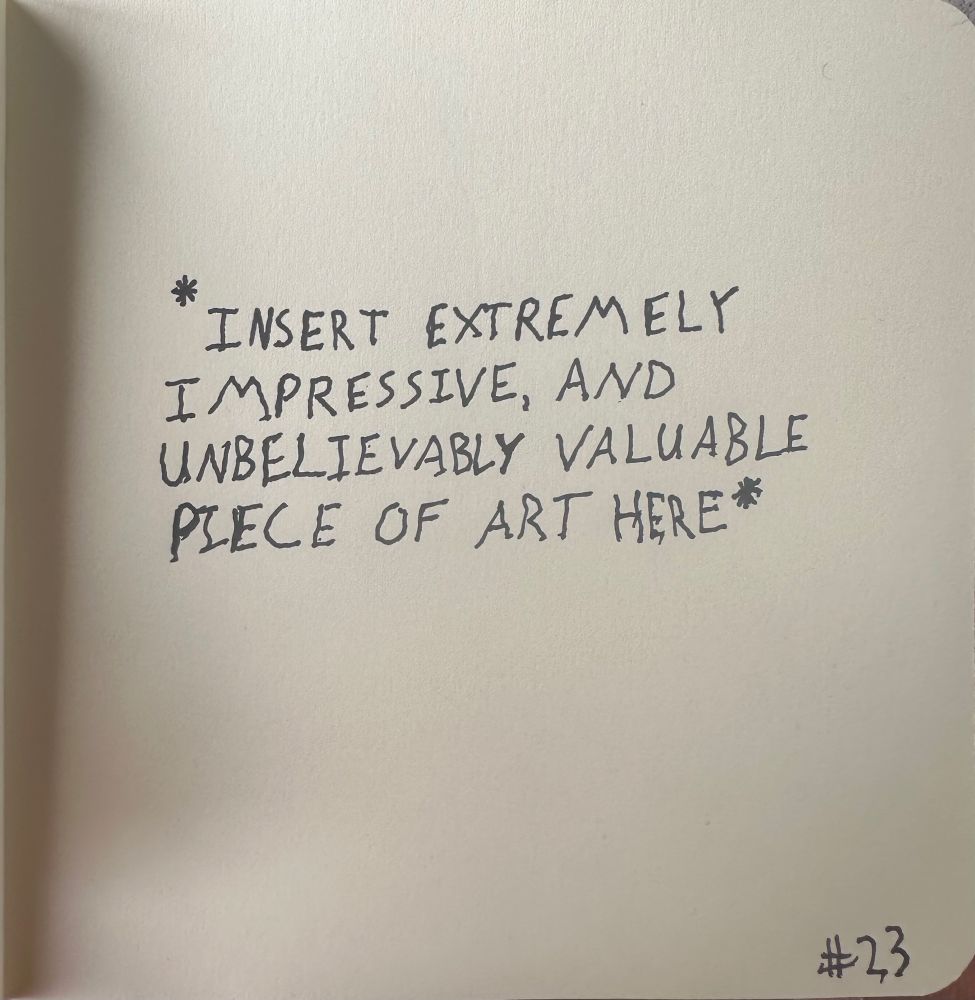 *INSERT EXTREMELY
IMPRESSIVE, AND
UNBELIEVABLY VALUABLE
PIECE OF ART HERE*
#23